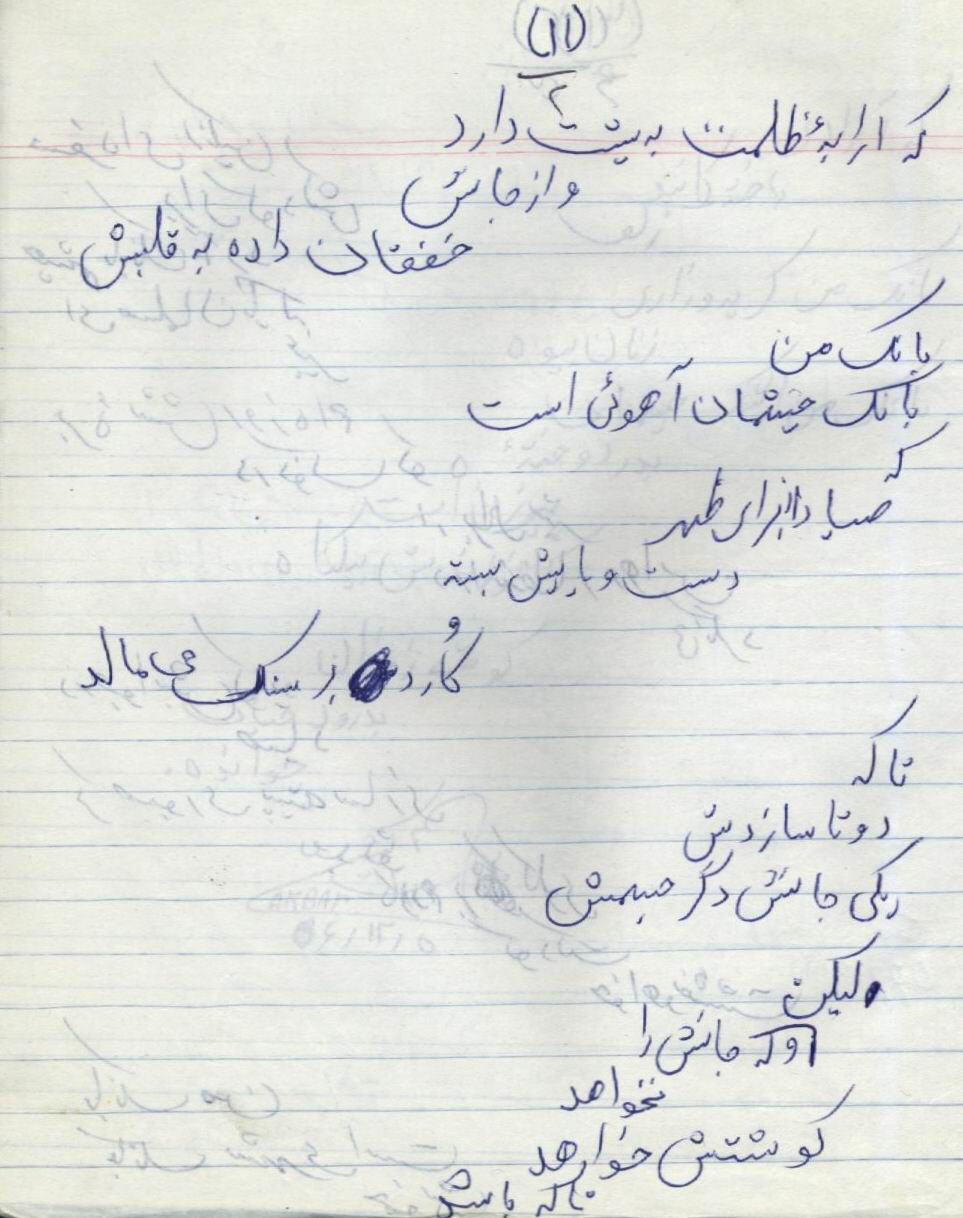 (۱۱)
۲
که ارابهٔ ظلمت به پشت دارد
و از جانش
خفقان داده به قلبش
بانک من
بانک چشمان آهوئی است
که
صیاد از برای ظهر
دست و پایش بسته
کارد بر سنک می مالد
تا که
دوتا سازدش
یکی جانش دگر جسمش
لیکن
او که جانش را
نخواهد
گوشتش خواهد
تا که باشد